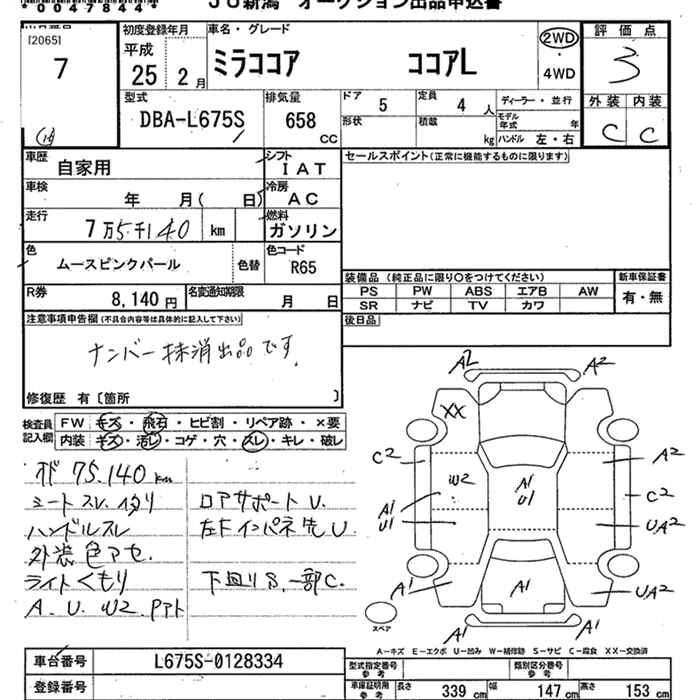 *0047844*
JU新潟 オークション出品申込書
[2065]
7
初度登録年月
平成
25 2 月
車名・グレード
ミラココア ココアL
2WD
4WD
評価点
3
外装 内装
C C
型式
DBA-L675S
排気量
658
CC
ドア 5
形状
定員 4 人
積載 kg
ディーラー・並行
モデル年式 年
ハンドル 左・右
車歴
自家用
シフト
IAT
車検
年 月( 日)
冷房
AC
走行
7万5千140 km
燃料
ガソリン
色
ムースピンクパール
色替
色コード
R65
R券
8,140 円
名変通知期限
月 日
セールスポイント(正常に機能するものに限ります)
装備品(純正品に限り○をつけてください)
PS PW ABS エアB AW
SR ナビ TV カワ
新車保証書
有・無
後日品
注意事項申告欄(不具合内容等は具体的に記入して下さい)
ナンバー抹消出品です。
修復歴 有〔箇所 〕
検査員記入欄
FW キズ・飛石・ヒビ割・リペア跡・×要
内装 キズ・汚レ・コゲ・穴・スレ・キレ・破レ
75.140km
シートスレ.
ハンドルスレ
外装色アセ.
ライトくもり
A.U.W2.
ロアサポートU.
左Fインパネ先U
下廻りS.一部C.
A2 A2
XX
C2
W2
A1
U1
A1
U1
A2
C2
UA2
A1
A1
UA2
A1 A1
スペア
A-キズ E-エクボ U-凹み W-補修跡 S-サビ C-腐食 XX-交換済
車台番号
L675S-0128334
登録番号
型式指定番号
参考
類別区分番号
参考
車庫証明用
参考
長さ 339 cm
幅 147 cm
高さ 153 cm